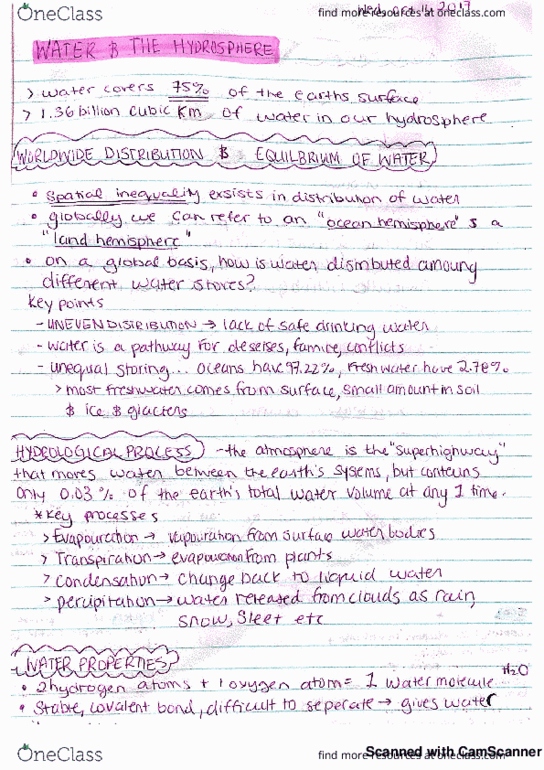 OneClass
find more resources at oneclass.com
Wed, Oct 14 2017
WATER & THE HYDROSPHERE
> water covers 75% of the earths surface
> 1.36 billion cubic Km of water in our hydrosphere
WORLDWIDE DISTRIBUTION & EQUILBRIUM OF WATER
• spatial inequality exsists in distribution of water
• globally we can refer to an "ocean hemisphere" & a
"land hemisphere"
• on a global basis, how is water distributed amoung
different water stores?
Key points
- UNEVEN DISTRIBUTION → lack of safe drinking water
- water is a pathway for deseises, famine, conflicts
- unequal storing... oceans have 97.22%, freshwater have 2.78%
> most freshwater comes from surface, small amount in soil
& ice & glacters
HYDROLOGICAL PROCESS - the atmosphere is the "superhighway"
that moves water between the earth's systems, but conteuns
only 0.03 % of the earth's total water volume at any 1 time.
* Key processes
> Evapouration → vapouration from surface water bodies
> Transpiration → evapouration from plants
> condensation → change back to liquid water
> percipitation → water released from clouds as rain,
snow, sleet etc
WATER PROPERTIES
H₂O
• 2 hydrogen atoms + 1 oxygen atom = 1 water molecule
• Stable, covalent bond, difficult to seperate → gives water
OneClass
find more resources at oneclass.com
Scanned with CamScanner